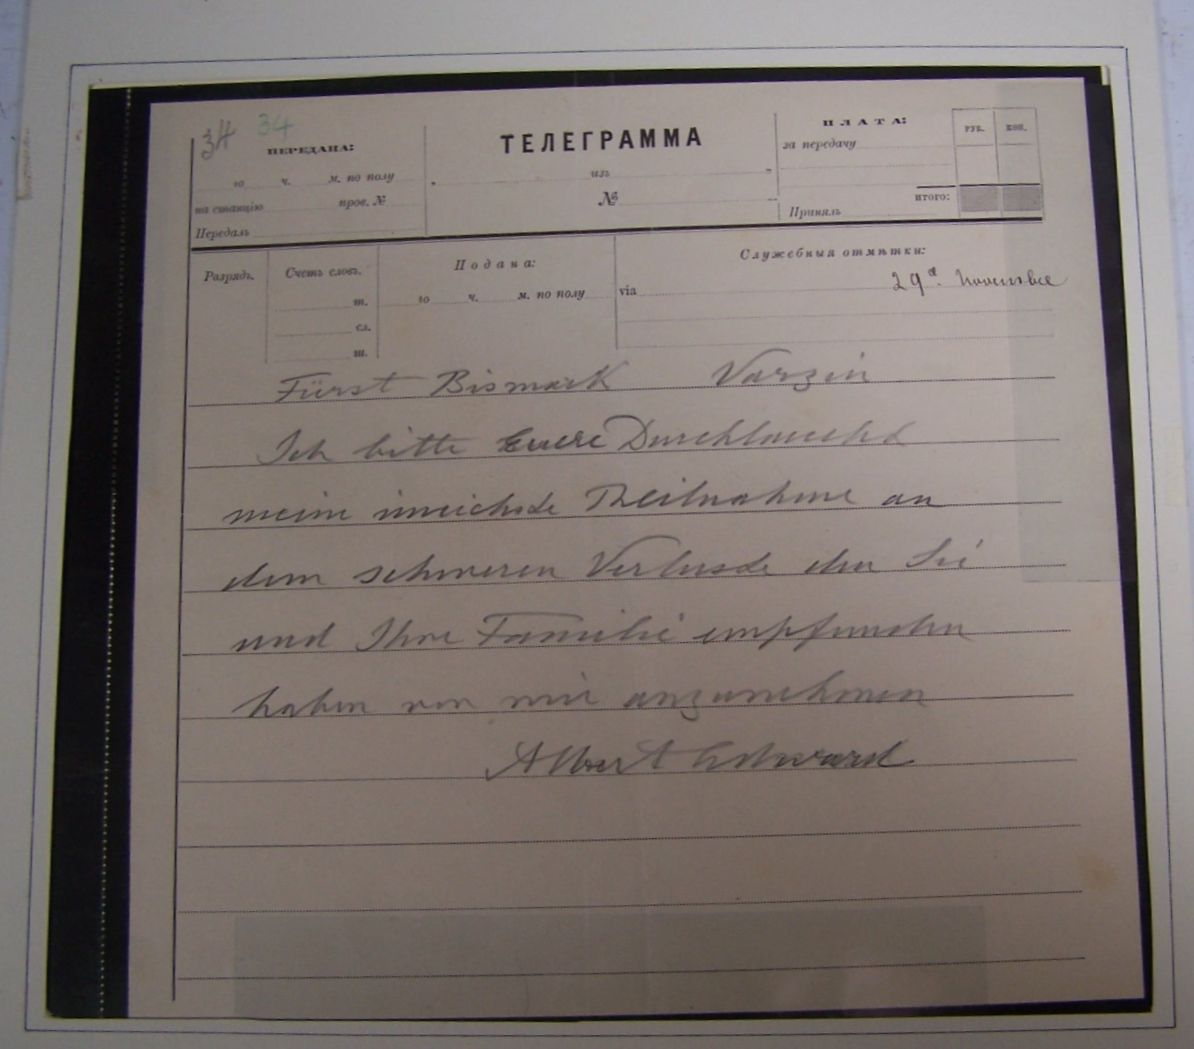 34 34
ПЕРЕДАНА:
го ч. м. по полу
на станцію пров. №
Передалъ
ТЕЛЕГРАММА
изъ
№
ПЛАТА:
за передачу
ИТОГО:
Принялъ
РУБ. КОП.
Разрядъ.
Счетъ словъ.
т.
сл.
ш.
Подана:
го ч. м. по полу
Служебныя отмѣтки:
via 29d. Novembre
Fürst Bismark Varzin
Ich bitte Euere Durchlaucht
meine innichste Theilnahme an
dem schweren Verluste den Sie
und Ihre Familie empfunden
haben von mir anzunehmen
Albert Edward